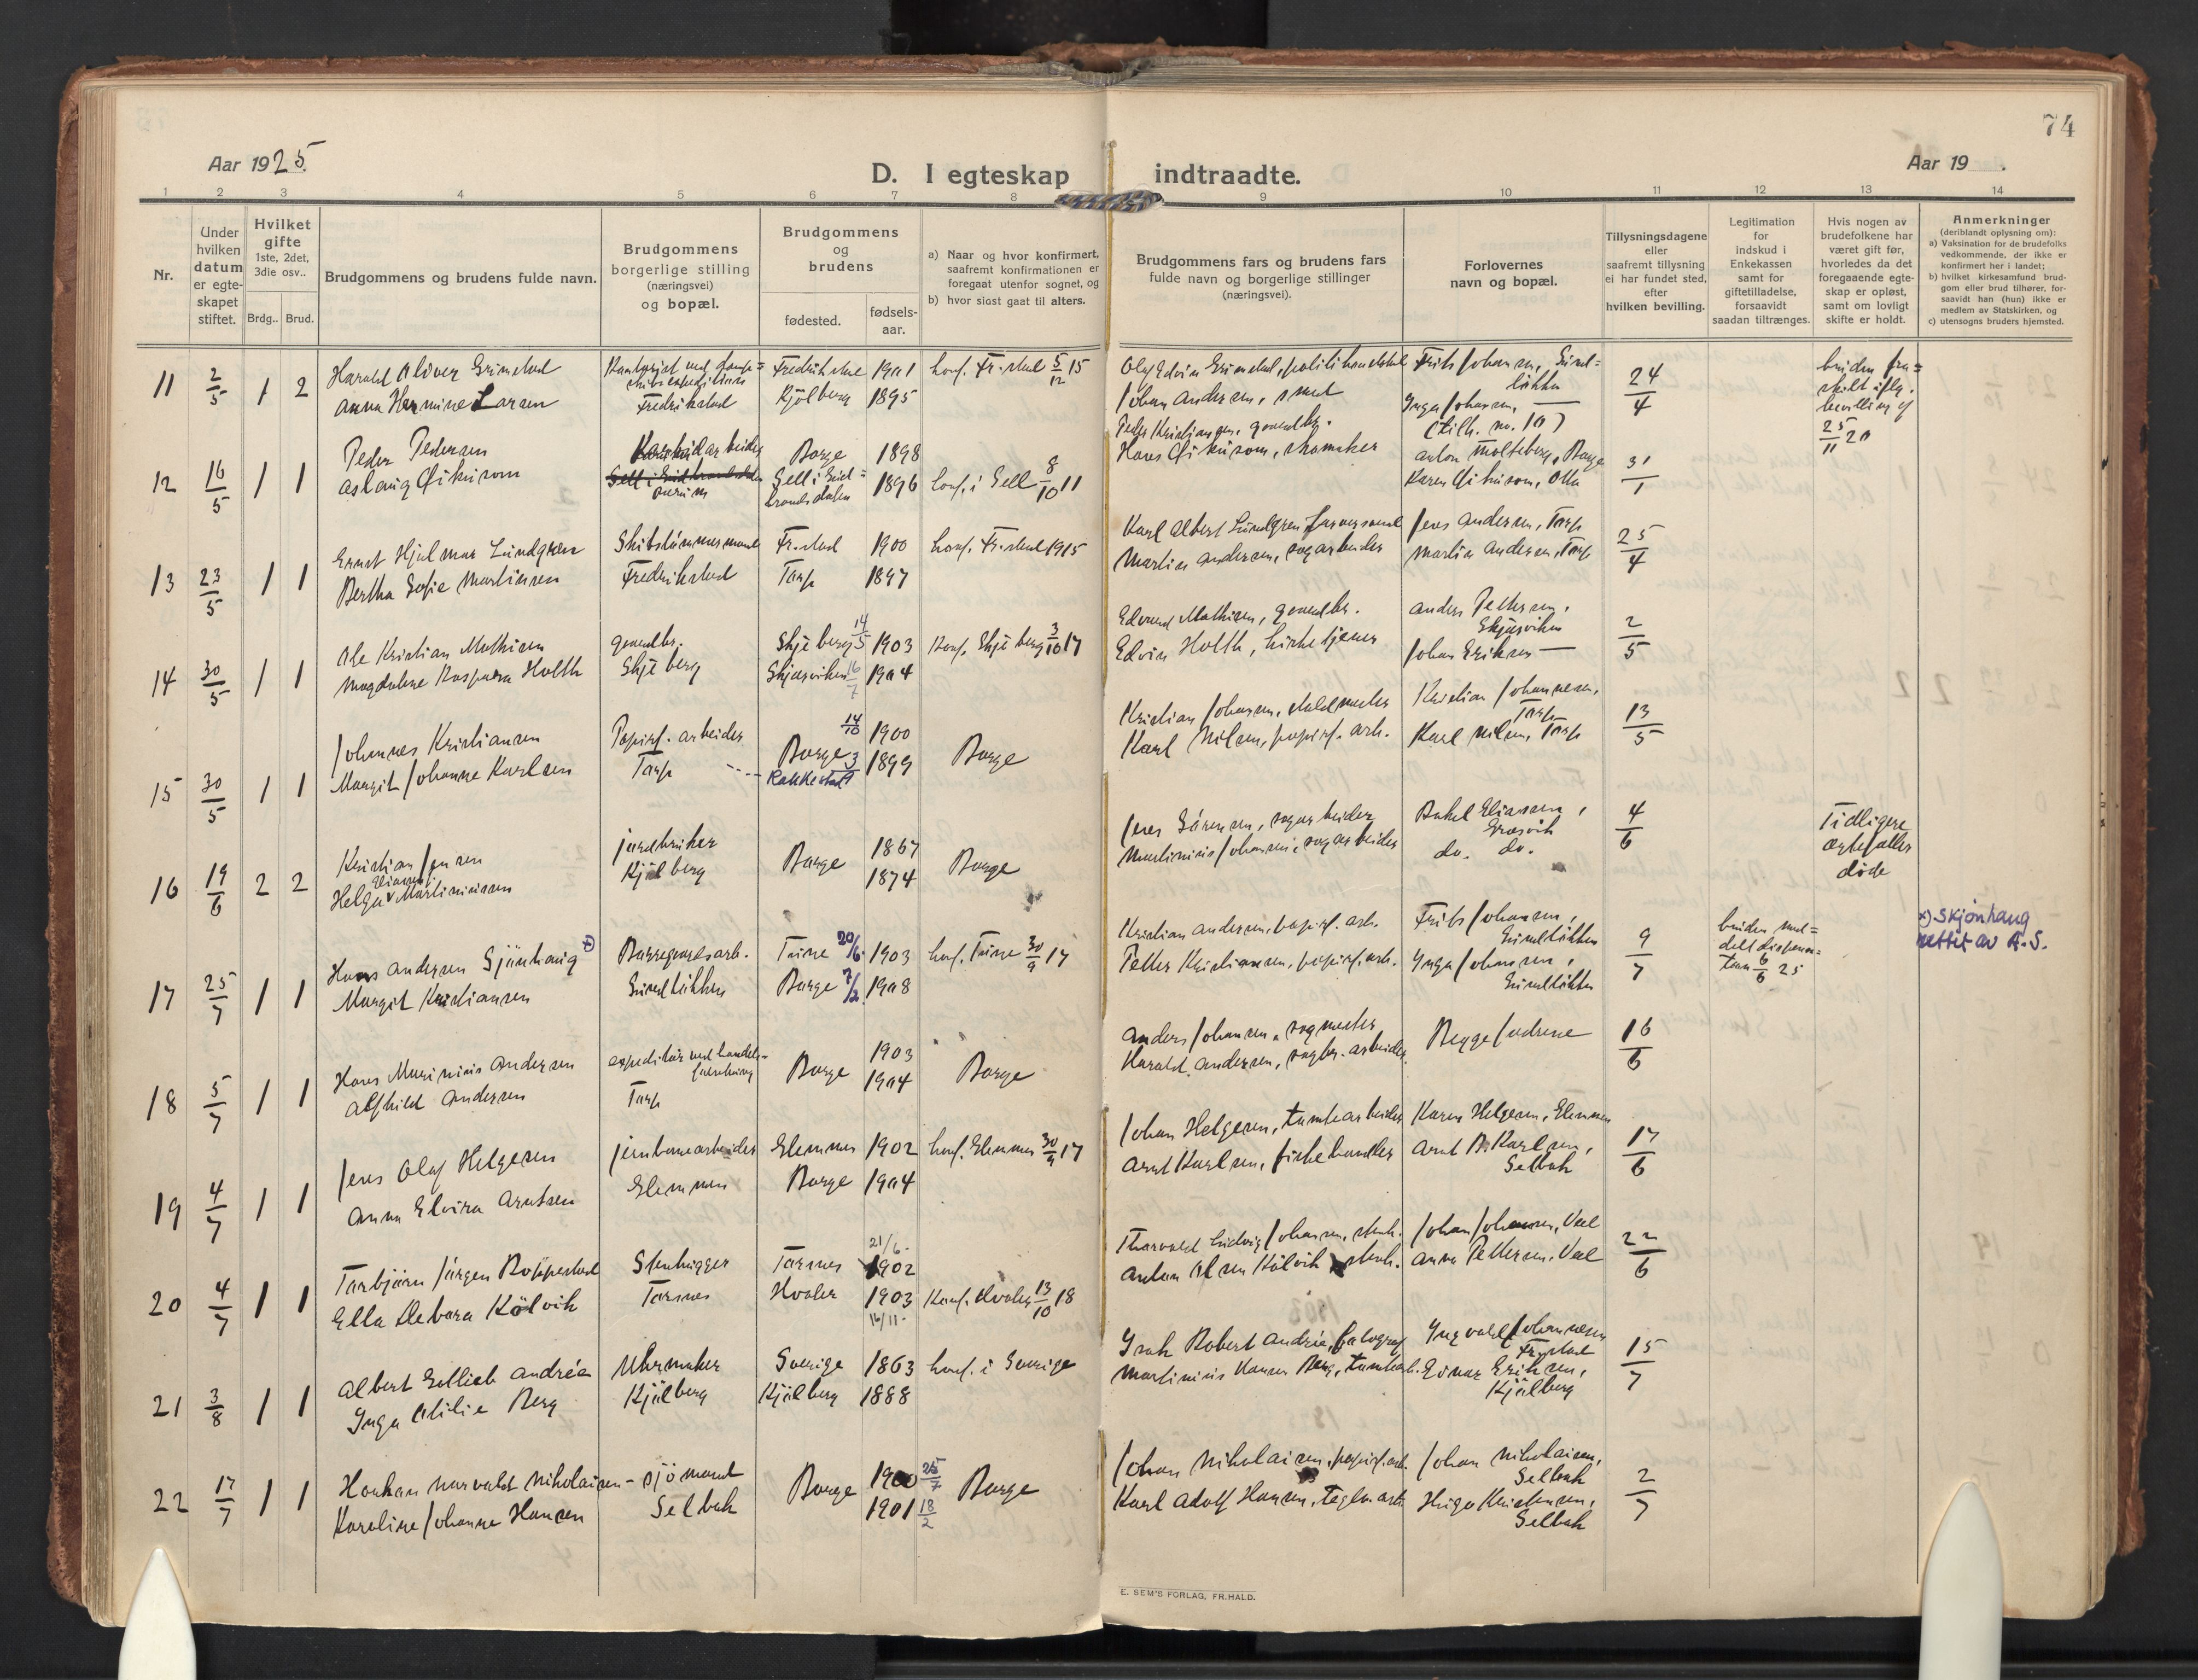 74
Aar 1925.
D. I egteskap indtraadte.
Aar 19 .
1 2 3 4 5 6 7 8 9 10 11 12 13 14
Nr.
Under hvilken datum er egteskapet stiftet.
Hvilket gifte 1ste, 2det, 3die osv..
Brdg.. Brud.
Brudgommens og brudens fulde navn.
Brudgommens borgerlige stilling (næringsvei) og bopæl.
Brudgommens og brudens
fødested.
fødsels-aar.
a) Naar og hvor konfirmert, saafremt konfirmationen er foregaat utenfor sognet, og
b) hvor sidst gaat til alters.
Brudgommens fars og brudens fars fulde navn og borgerlige stillinger (næringsvei).
Forlovernes navn og bopæl.
Tillysningsdagene eller saafremt tillysning ei har fundet sted, efter hvilken bevilling.
Legitimation for indskud i Enkekassen samt for giftetilladelse, forsaavidt saadan tiltrænges.
Hvis nogen av brudefolkene har været gift før, hvorledes da det foregaaende egteskap er opløst, samt om lovligt skifte er holdt.
Anmerkninger (deriblandt oplysning om):
a) Vaksination for de brudefolks vedkommende, der ikke er konfirmert her i landet;
b) hvilket kirkesamfund brudgom eller brud tilhører, forsaavidt han (hun) ikke er medlem av Statskirken, og
c) utensogns bruders hjemsted.
11 2/5 1 2
Harald Oliver Grimstad
Anna Hermine Larsen
Fredrikstad
Kjølberg 1895
konf. Fr.stad 5/12 15
Johan Andersen, smed
Frits Johansen,
Inga Johansen, —
24/4
bruden fraskilt iflg. bevilling af 25/11 20
12 16/5 1 1
Peder Pedersen
Borge 1898
Sell i Gudbrandsdalen 1896
konf. i Sell 8/10 11
Peder Kristiansen, gaardbr.
skomaker
Anton Molteberg, Borge
31/1
13 23/5 1 1
Ernst Hjalmar Lundgren
Bertha Sofie Martinsen
Skibstømmermand
Fredrikstad
Fr.stad 1900
Torp 1897
konf. Fr.stad 1915
Karl Albert Lundgren
Martin Andersen, sagarbeider
Jens Andersen, Torp
Martin Andersen, Torp
25/4
14 30/5 1 1
Ole Kristian Mathisen
Magdalene Kaspara Holth
gaardbr.
Skjeberg
Skjeberg 14/5 1903
Skjærviken 16/7 1904
Konf. Skjeberg 3/10 17
Edvard Mathisen, gaardbr.
Edvin Holth, kirketjener
Anders Pettersen,
Skjærviken
Johan Eriksen —
2/5
15 30/5 1 1
Johannes Kristiansen
Margit Johanne Karlsen
Papirf. arbeider
Torp
14/10 1900
Borge 3/9 1899
Rakkestad
Borge
Kristian Johansen, staldmester
Karl Nilsen, papirf. arb.
Kristian Johannesen,
Torp
Karl Nilsen, Torp
13/5
16 19/6 2 2
Kristian Jensen
Helga Martiniussen
jordbruker
Kjølberg
Borge
1867
1874
Borge
Jens Sørensen, sagarbeider
Martinius Johansen, sagarbeider
Eliassen,
Græsvik
do. do.
4/6
Tidligere ægtefæller døde
17 25/7 1 1
Hans Andersen Sjönhaug x)
Margit Kristiansen
Borregaardsarb.
Sundløkken
Tune 20/6. 1903
Borge 7/2 1908
konf. Tune 30/9 17
Kristian Andersen, papirf. arb.
Petter Kristiansen, papirf. arb.
Frits Johansen,
Sundløkken
Inga Johansen,
Sundløkken
9/7
bruden meddelt dispensation 6/6 25
x) Skjønhaug
rettet av A.S.
18 5/7 1 1
Hans Marinius Andersen
Alfhild Andersen
Torp
Borge
1903
1904
Borge
Anders Johansen, sagmester
Harald Andersen, sagbr. arbeider
Begge fædrene
16/6
19 4/7 1 1
Jens Olaf Helgesen
Anna Elvira Arntsen
jernbanearbeider
Glemmen
Glemmen 1902
Borge 1904
konf. Glemmen 30/9 17
Johan Helgesen, tomtearbeider
Arnt Karlsen, fiskehandler
Karen Helgesen, Glemmen
Arnt B. Karlsen,
Selbak
17/6
20 4/7 1 1
Torbjørn Jørgen Roppestad
Ella Debora Kölvik
Stenhugger
Torsnes
Torsnes 21/6. 1902
Hvaler 1903 16/11.
Konf. Hvaler 13/10 18
Thorvald Ludvig Johansen, stenh.
Anton Olsen Kölvik stenh.
Johan Johansen, Væl
Anna Pettersen, Væl
22/6
21 3/8 1 1
Albert Gottlieb Andréa
Inga Otilie Berg
Uhrmaker
Kjølberg
Sverige 1863
Kjølberg 1888
konf. i Sverige
Isak Robert Andréa, fotograf
Martinius Hansen Berg, tomtearb.
Ingvald Johannesen
Fr.stad
Einar Eriksen,
Kjølberg
15/7
22 17/7 1 1
Haakon Narvald Nikolaisen
Karoline Johanne Hansen
sjömand
Selbak
Borge
1900 25/7
1901 18/2
Borge
Johan Nikolaisen, papirf. arb.
Karl Adolf Hansen, teglv. arb.
Johan Nikolaisen,
Selbak
Hugo Kristensen,
Selbak
2/7
E. SEM'S FORLAG, FR.HALD.